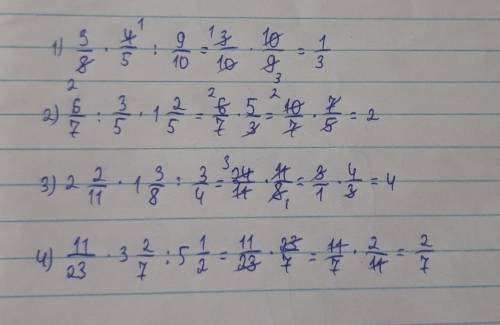 1) 3/8 · 4¹/5 : 9/10 = ¹3/10 · 10/9₃ = 1/3
2) 6/7 : 3/5 · 1 2/5 = ²6/7 · 5/3 = ²10/7 · 7/5 = 2
3) 2 2/11 · 1 3/8 : 3/4 = ³24/11 · 11/8₁ = 3/1 · 4/3 = 4
4) 11/23 · 3 2/7 : 5 1/2 = 11/23 · 23/7 = 11/7 · 2/11 = 2/7